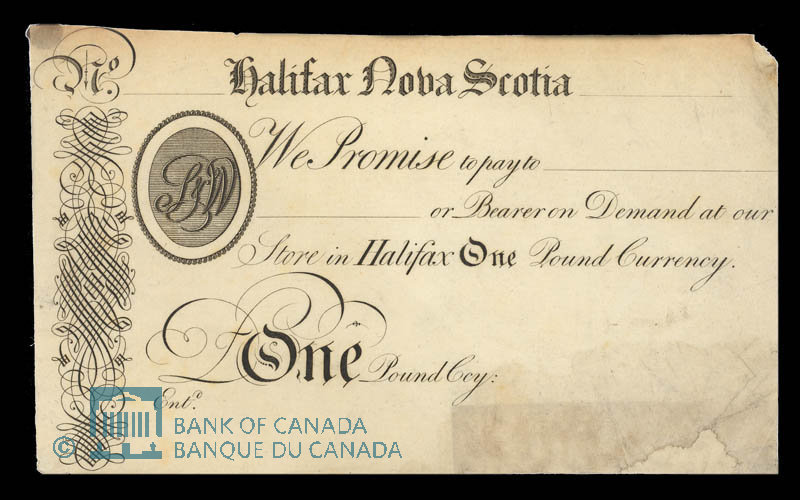 No. Halifax Nova Scotia
We Promise to pay to
or Bearer on Demand at our
Store in Halifax One Pound Currency.
One Pound Ccy:
Ent.d
© BANK OF CANADA
BANQUE DU CANADA